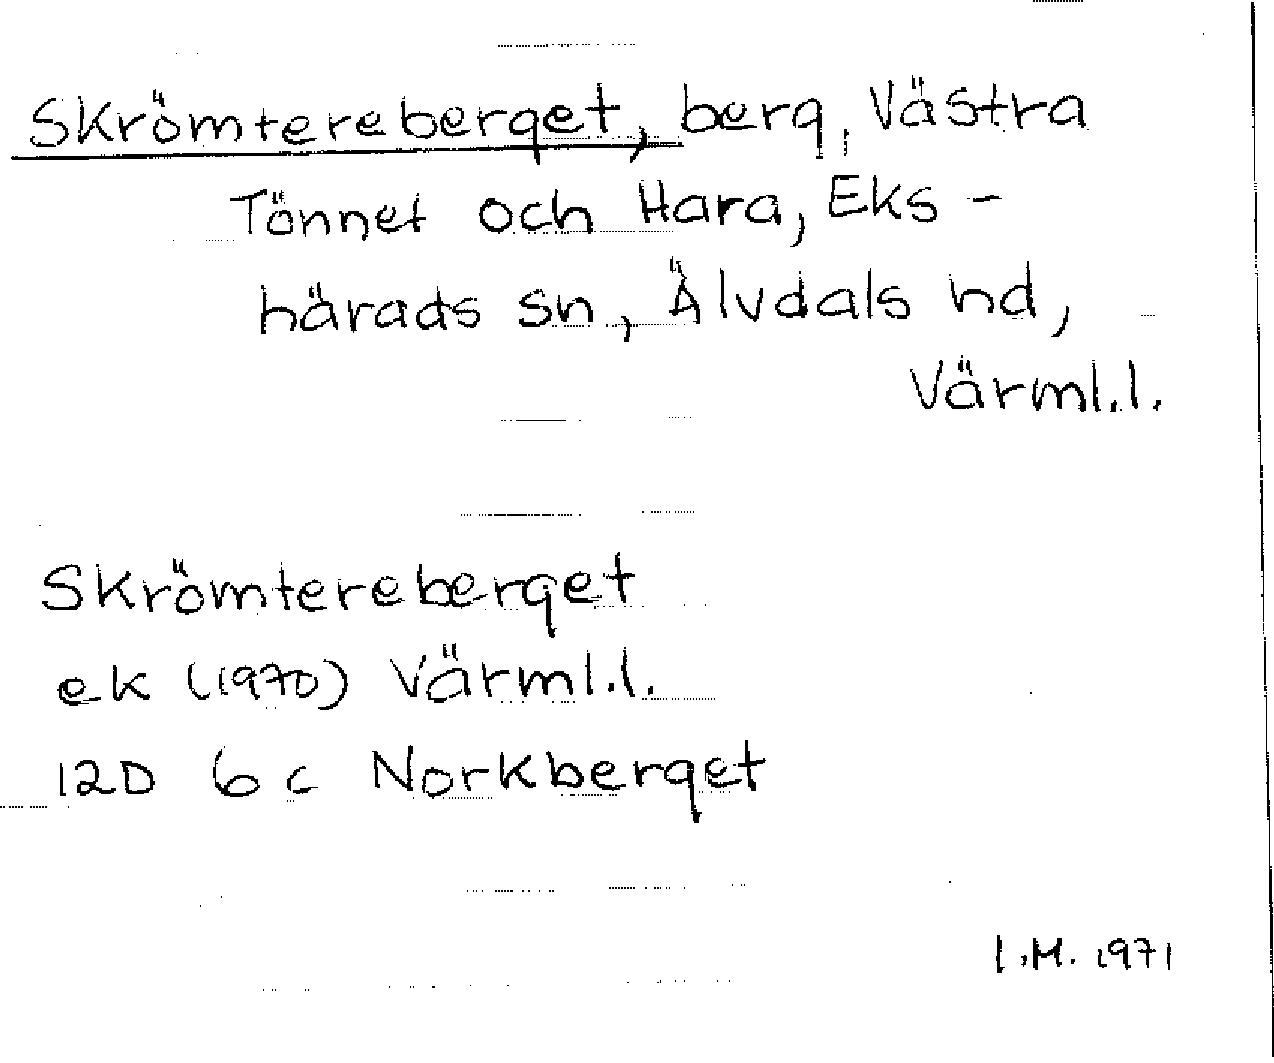 Skrömtereberget, berg, Västra
Tönnet och Hara, Eks-
härads sn, Älvdals hd,
Värml.l.
Skrömtereberget
ek (1970) Värml.l.
12D 6c Norkberget
I.M. 1971